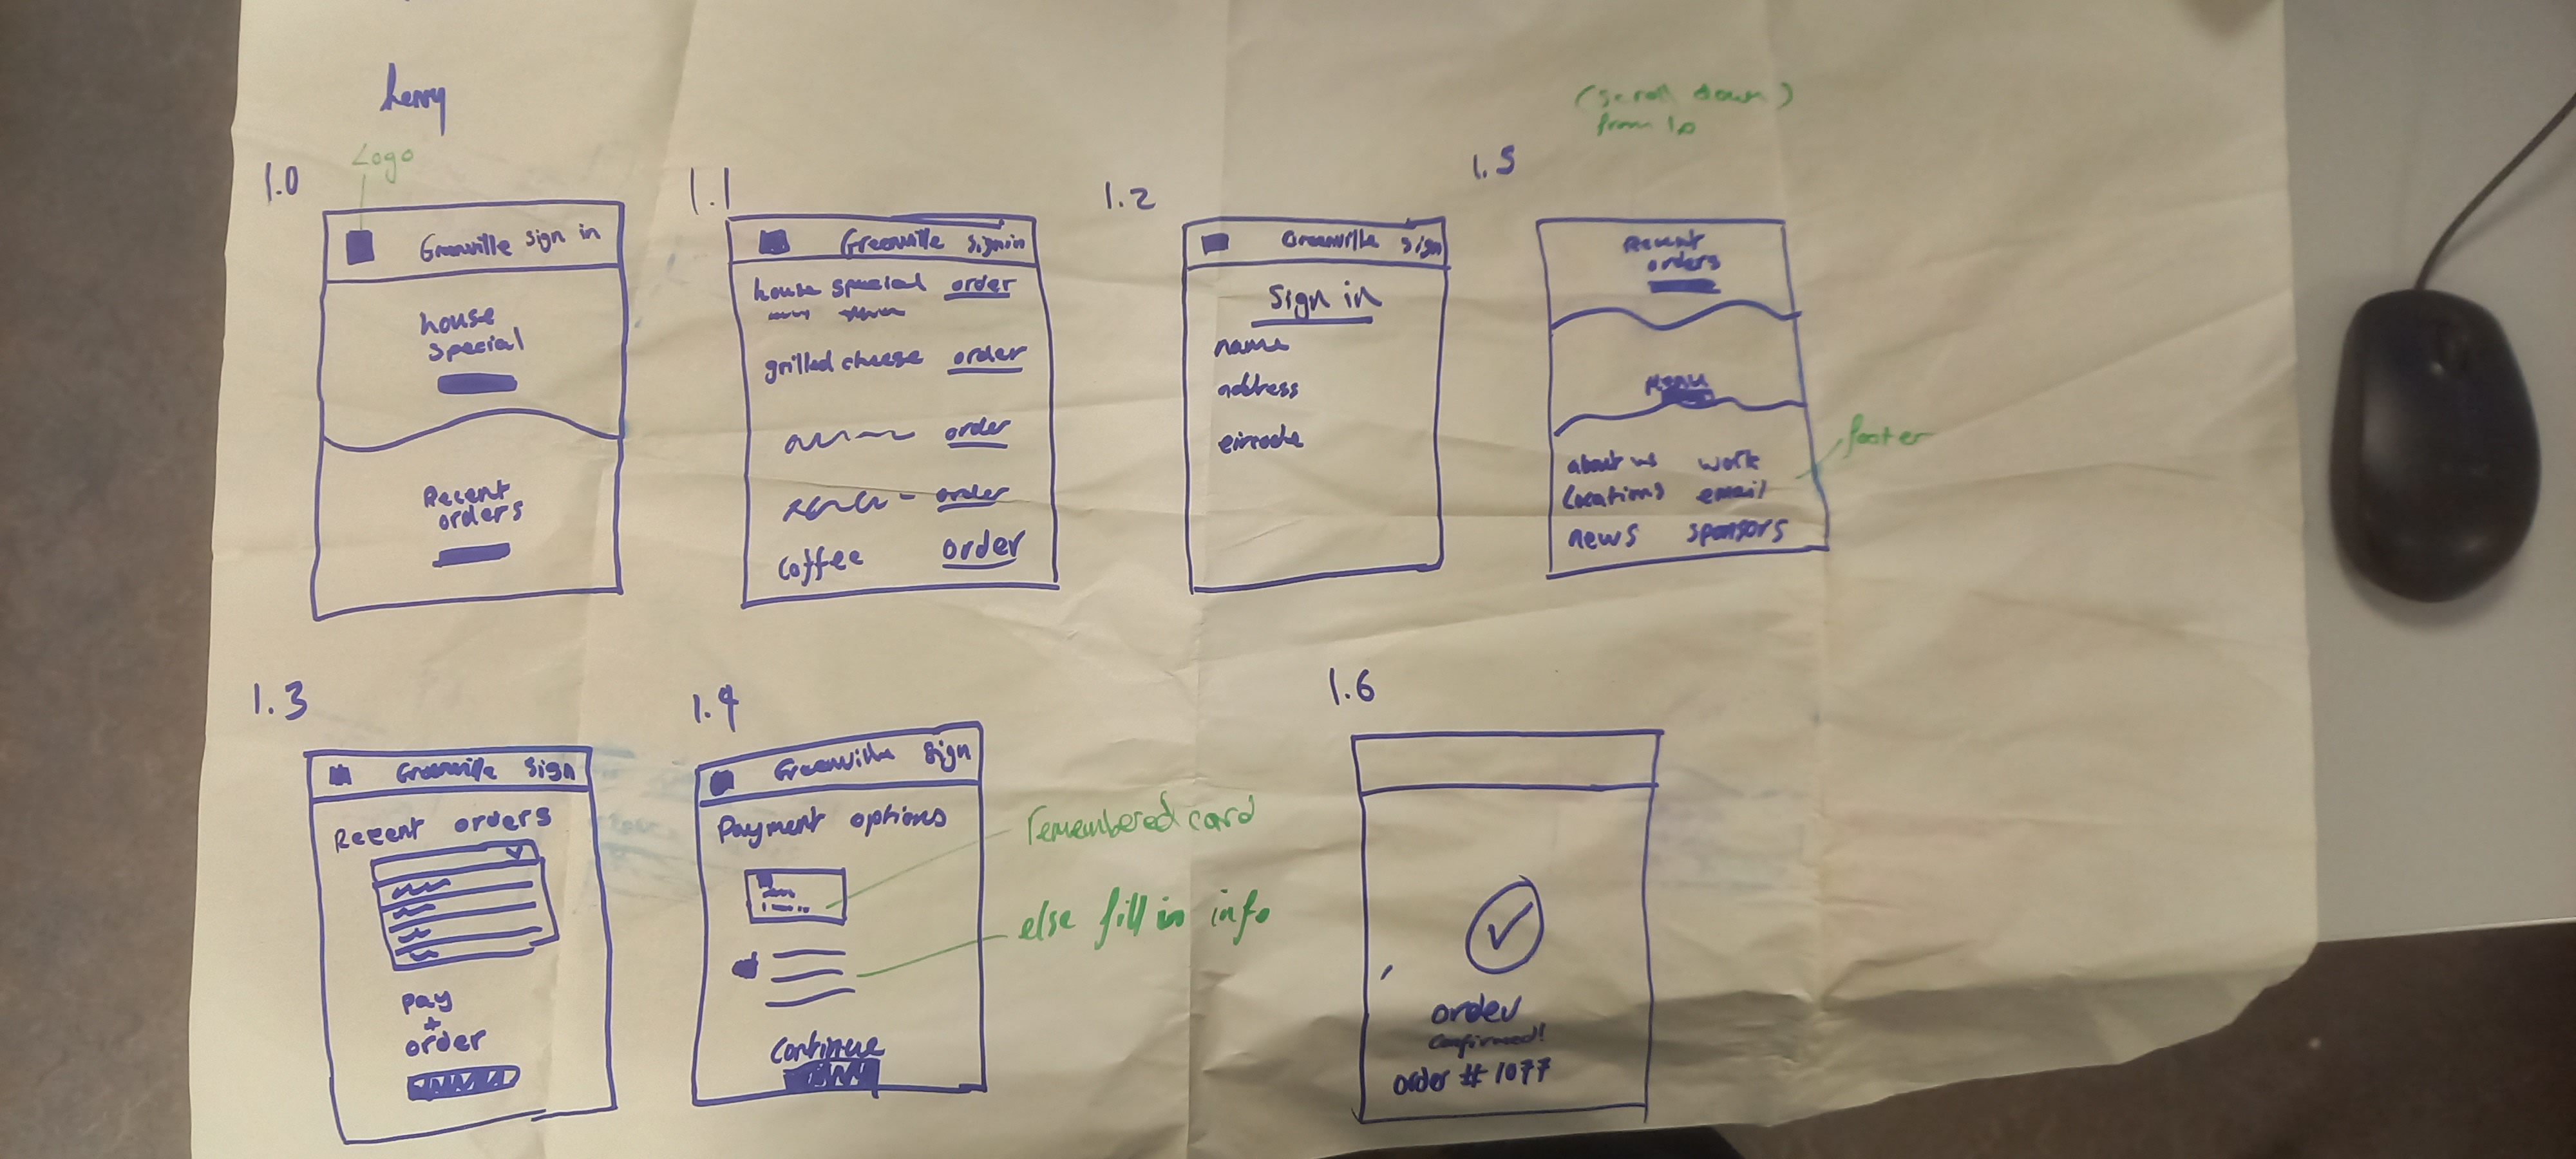 Logo
1.0
Greenville sign in
house
special
Recent
orders
1.1
Greenville signin
house special order
grilled cheese order
order
order
coffee order
1.2
Greenville sign
Sign in
name
address
1.5
(scroll down
from 1.0
Recent
orders
about us work
locations email
news sponsors
footer
1.3
Greenville Sign
Recent orders
Pay
+
order
1.4
Greenville Sign
Payment options
Continue
remembered card
else fill in info
1.6
order
confirmed!
order #1077